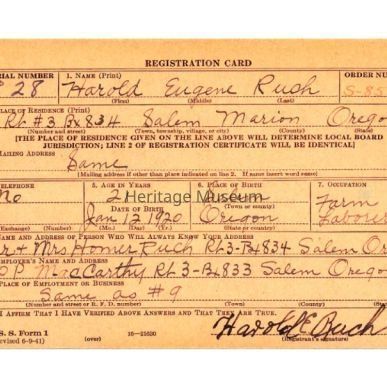 REGISTRATION CARD
SERIAL NUMBER 1. NAME (Print) ORDER NUMBER
28 Harold Eugene Ruch S-85
(First) (Middle) (Last)
PLACE OF RESIDENCE (Print)
Rt #3 Bx 834 Salem Marion Oregon
(Number and street) (Town, township, village, or city) (County) (State)
[THE PLACE OF RESIDENCE GIVEN ON THE LINE ABOVE WILL DETERMINE LOCAL BOARD
JURISDICTION; LINE 2 OF REGISTRATION CERTIFICATE WILL BE IDENTICAL]
MAILING ADDRESS
Same
(Mailing address if other than place indicated on line 2. If same insert word same)
TELEPHONE 5. AGE IN YEARS 6. PLACE OF BIRTH 7. OCCUPATION
No 21 Farm
Heritage Museum
DATE OF BIRTH (Town or county)
Jan 12 1920 Oregon Labour
(Exchange) (Number) (Mo.) (Day) (Yr.) (State or country)
NAME AND ADDRESS OF PERSON WHO WILL ALWAYS KNOW YOUR ADDRESS
Mr & Mrs Homer Ruch Rt 3-Bx 834 Salem Or
EMPLOYER'S NAME AND ADDRESS
P. MacCarthy Rt 3-Bx 833 Salem Oregon
PLACE OF EMPLOYMENT OR BUSINESS
Same as #9
(Number and street or R. F. D. number) (Town) (County) (State)
I AFFIRM THAT I HAVE VERIFIED ABOVE ANSWERS AND THAT THEY ARE TRUE.
S. S. Form 1 16-21630 Harold E Ruch
(Revised 6-9-41) (over) (Registrant's signature)